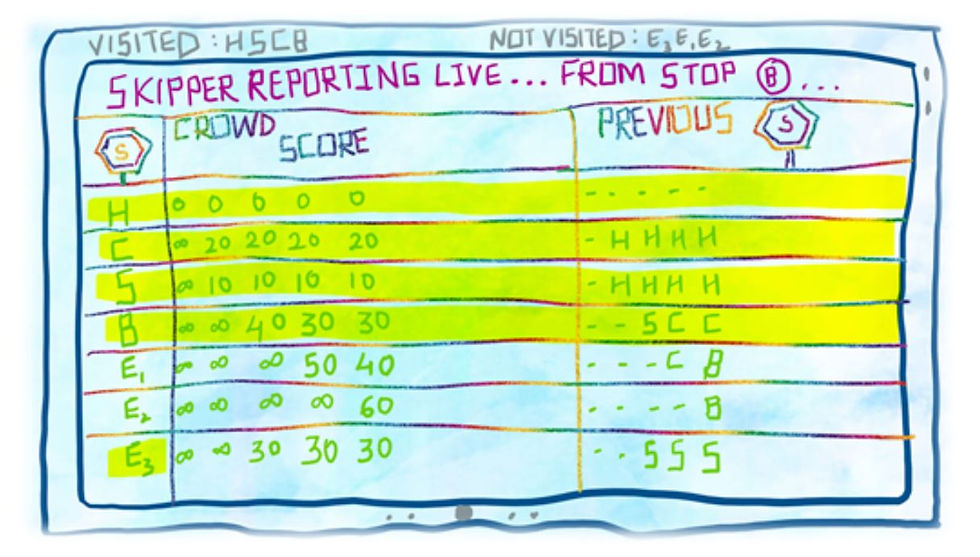 VISITED : HSCB NOT VISITED : E₃E₁E₂
SKIPPER REPORTING LIVE... FROM STOP Ⓑ...
S CROWD SCORE PREVIOUS S
H 0 0 0 0 0 - - - - -
C ∞ 20 20 20 20 - H H H H
S ∞ 10 10 10 10 - H H H H
B ∞ ∞ 40 30 30 - - S C C
E₁ ∞ ∞ ∞ 50 40 - - - C B
E₂ ∞ ∞ ∞ ∞ 60 - - - - B
E₃ ∞ ∞ 30 30 30 - - S S S